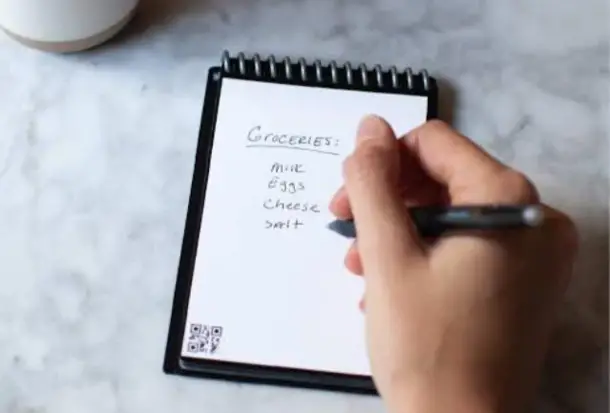 GROCERIES:
Milk
Eggs
Cheese
Salt